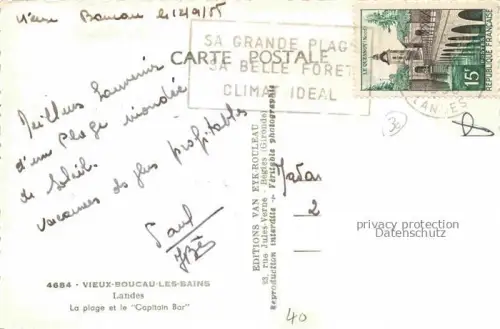 Vieux Boucau le 12/9/55
SA GRANDE PLAGE
SA BELLE FORET
CLIMAT IDEAL
CARTE POSTALE
LE QUESNOY (NORD)
15F
REPUBLIQUE FRANÇAISE
LANDES
30
Meilleurs Souvenirs
d'un plage inondée
de Soleil.
vacances des plus profitables
Paul
EDITIONS VAN EYK-ROULEAU
23, rue Jules-Verne - Bègles (Gironde)
Reproduction interdite - Véritable photographie
Madam
2
privacy protection
Datenschutz
4684 - VIEUX-BOUCAU-LES-BAINS
Landes
La plage et le "Capitain Bar"
40